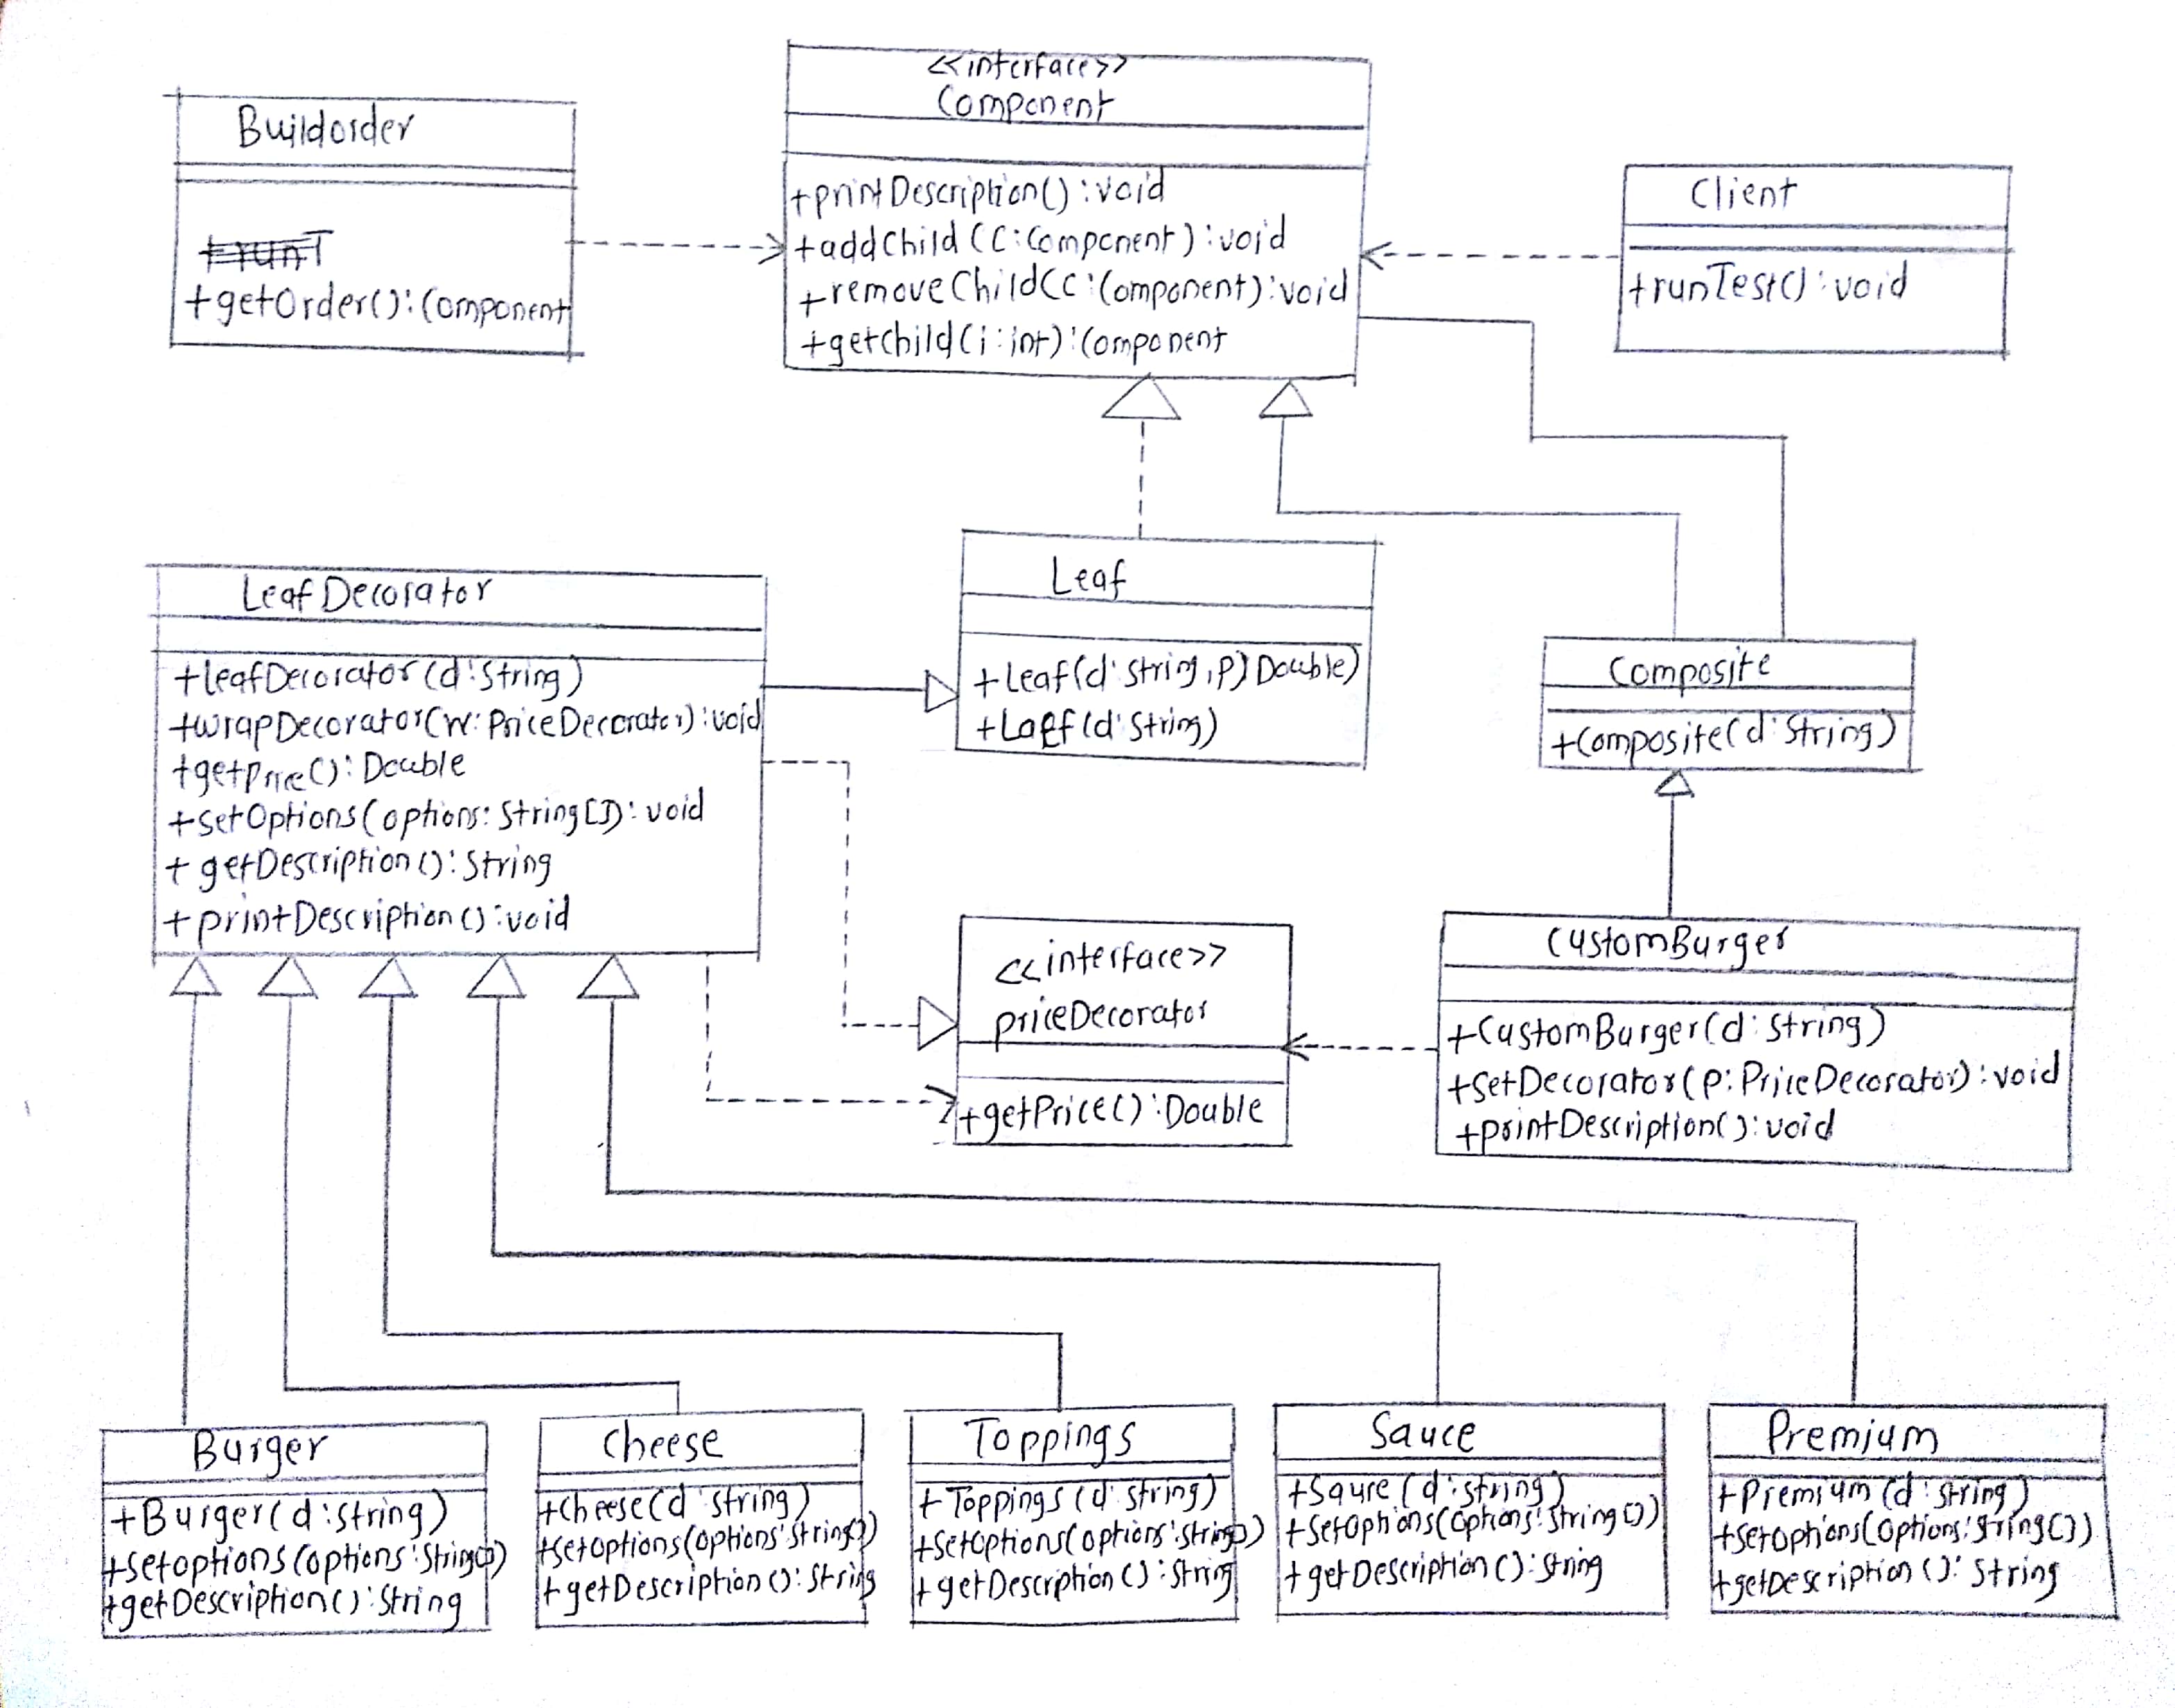 Buildorder
+runT
+getOrder():Component
<<interface>>
Component
+printDescription():void
+addChild(C:Component):void
+removeChild(c:Component):void
+getchild(i:int):Component
Client
+runTest():void
LeafDecorator
+leafDecorator(d:String)
+wrapDecorator(w:PriceDecorator):void
+getprice():Double
+setOptions(options:String[]):void
+getDescription():String
+printDescription():void
Leaf
+Leaf(d:String,p)Double)
+Laef(d:String)
Composite
+Composite(d:String)
<<interface>>
priceDecorator
+getPrice():Double
CustomBurger
+CustomBurger(d:String)
+setDecorator(p:PriceDecorator):void
+printDescription():void
Burger
+Burger(d:String)
+setoptions(options:String[])
+getDescription():String
Cheese
+Cheese(d:String)
+setOptions(options:String[])
+getDescription():String
Toppings
+Toppings(d:String)
+setOptions(options:String[])
+getDescription():String
Sauce
+Saure(d:String)
+setOptions(options:String[])
+getDescription():String
Premium
+Premium(d:String)
+setOptions(options:String[])
+getDescription():String